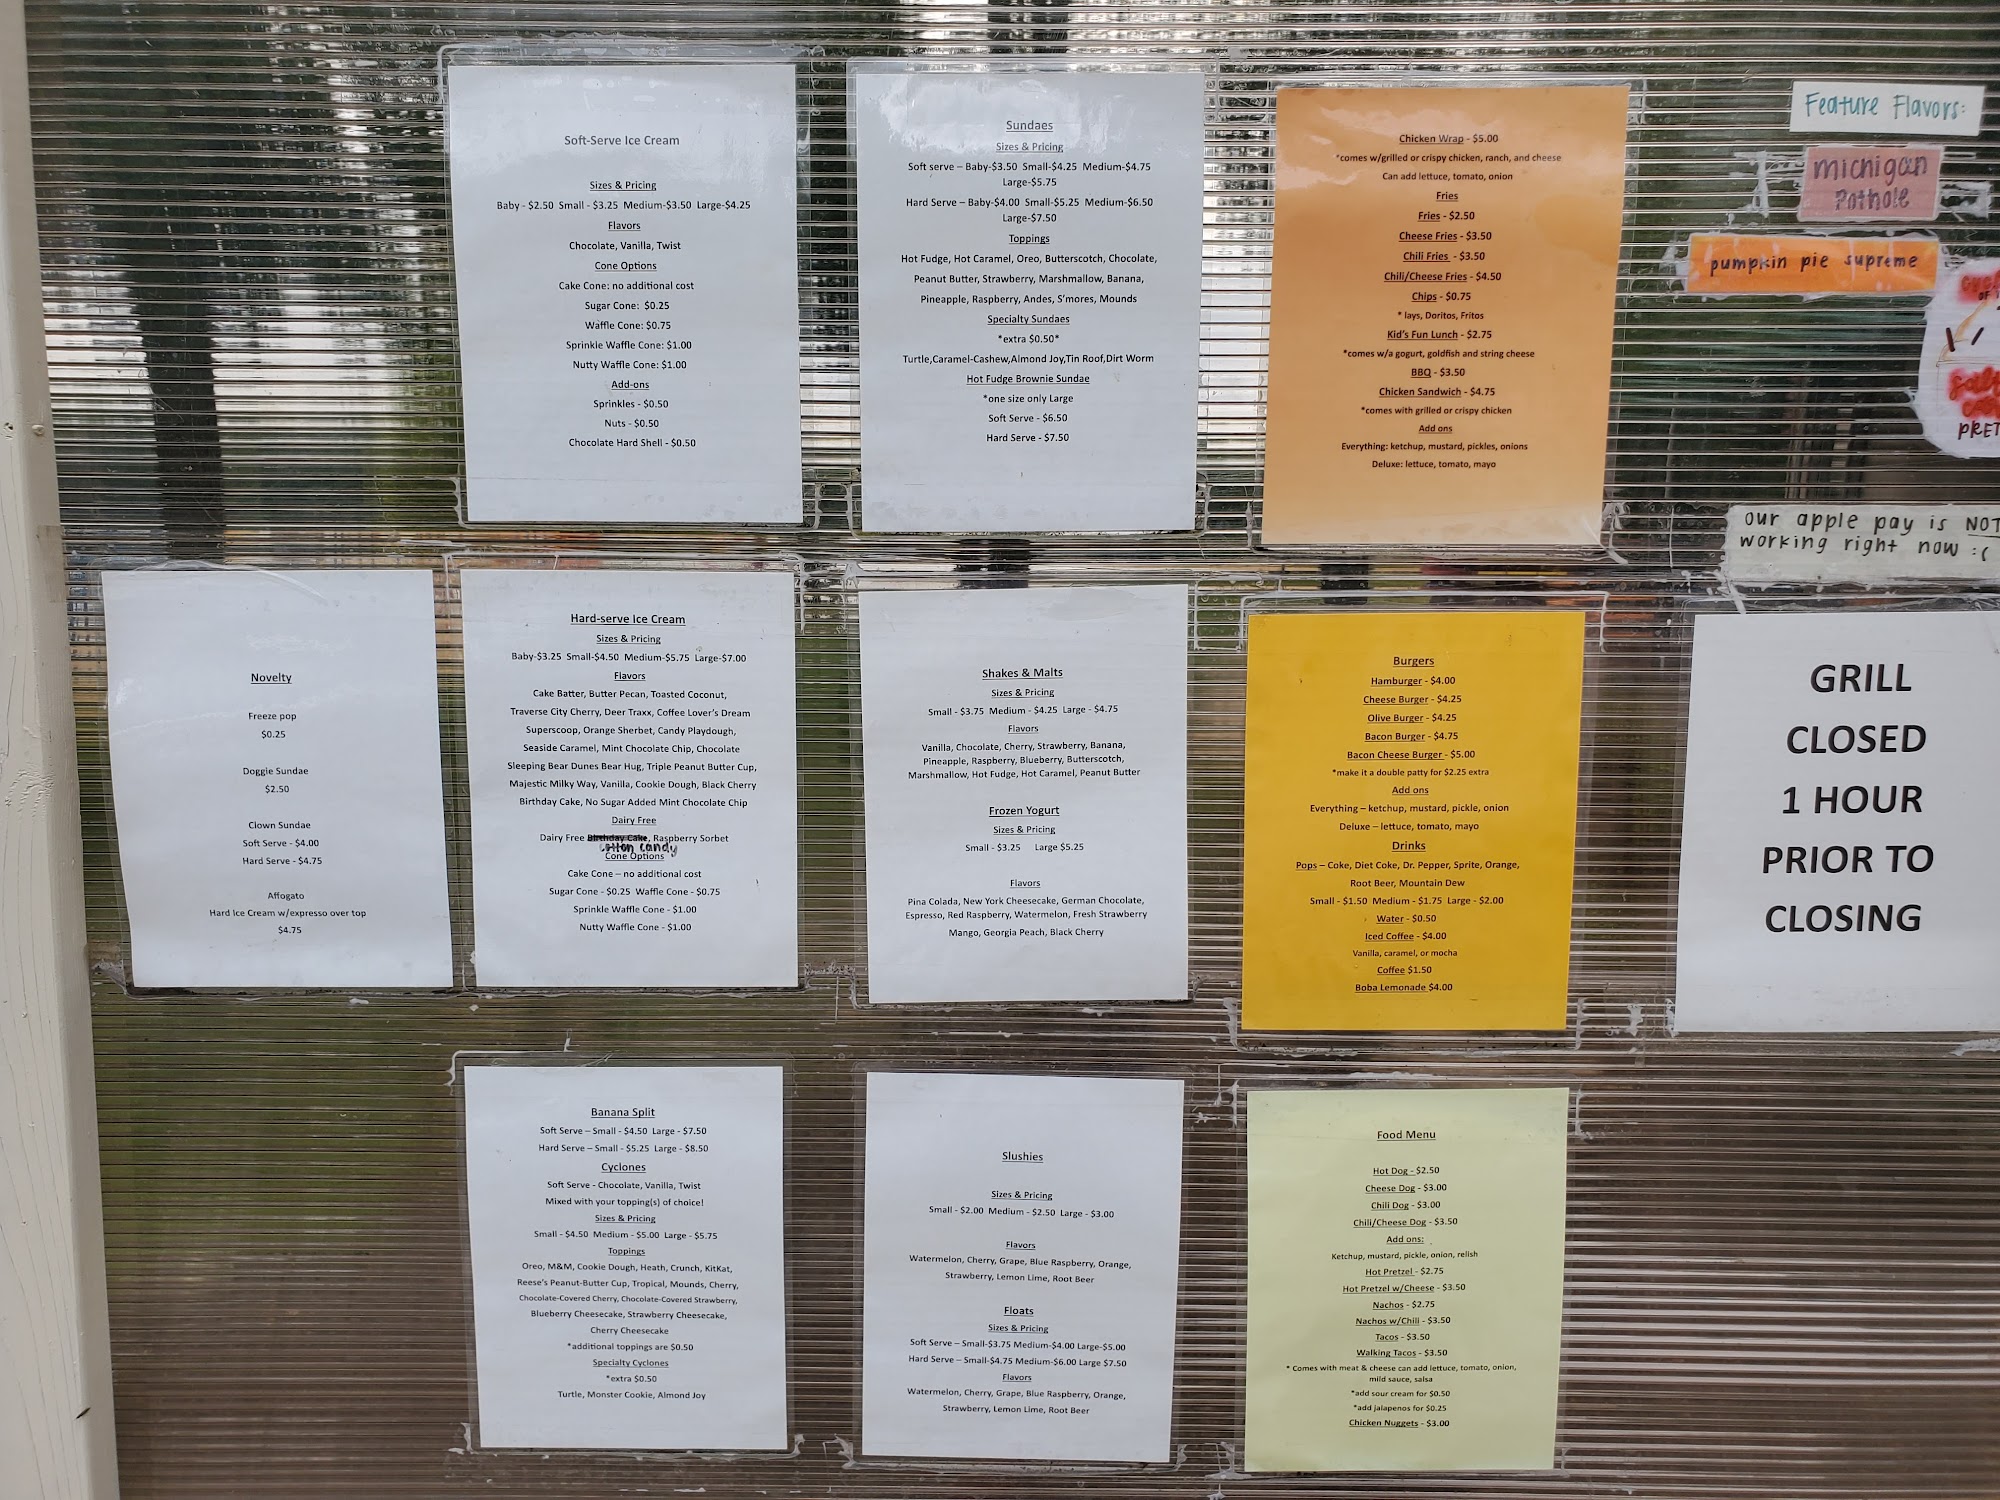 Soft-Serve Ice Cream
Sizes & Pricing
Baby - $2.50 Small - $3.25 Medium-$3.50 Large-$4.25
Flavors
Chocolate, Vanilla, Twist
Cone Options
Cake Cone: no additional cost
Sugar Cone: $0.25
Waffle Cone: $0.75
Sprinkle Waffle Cone: $1.00
Nutty Waffle Cone: $1.00
Add-ons
Sprinkles - $0.50
Nuts - $0.50
Chocolate Hard Shell - $0.50
Sundaes
Sizes & Pricing
Soft serve – Baby-$3.50 Small-$4.25 Medium-$4.75
Large-$5.75
Hard Serve – Baby-$4.00 Small-$5.25 Medium-$6.50
Large-$7.50
Toppings
Hot Fudge, Hot Caramel, Oreo, Butterscotch, Chocolate,
Peanut Butter, Strawberry, Marshmallow, Banana,
Pineapple, Raspberry, Andes, S'mores, Mounds
Specialty Sundaes
*extra $0.50*
Turtle,Caramel-Cashew,Almond Joy,Tin Roof,Dirt Worm
Hot Fudge Brownie Sundae
*one size only Large
Soft Serve - $6.50
Hard Serve - $7.50
Chicken Wrap - $5.00
*comes w/grilled or crispy chicken, ranch, and cheese
Can add lettuce, tomato, onion
Fries
Fries - $2.50
Cheese Fries - $3.50
Chili Fries - $3.50
Chili/Cheese Fries - $4.50
Chips - $0.75
* lays, Doritos, Fritos
Kid's Fun Lunch - $2.75
*comes w/a gogurt, goldfish and string cheese
BBQ - $3.50
Chicken Sandwich - $4.75
*comes with grilled or crispy chicken
Add ons
Everything: ketchup, mustard, pickles, onions
Deluxe: lettuce, tomato, mayo
Feature Flavors:
michigan
Pothole
pumpkin pie supreme
OF
PRET
our apple pay is NOT
working right now :(
Novelty
Freeze pop
$0.25
Doggie Sundae
$2.50
Clown Sundae
Soft Serve - $4.00
Hard Serve - $4.75
Affogato
Hard Ice Cream w/expresso over top
$4.75
Hard-serve Ice Cream
Sizes & Pricing
Baby-$3.25 Small-$4.50 Medium-$5.75 Large-$7.00
Flavors
Cake Batter, Butter Pecan, Toasted Coconut,
Traverse City Cherry, Deer Traxx, Coffee Lover's Dream
Superscoop, Orange Sherbet, Candy Playdough,
Seaside Caramel, Mint Chocolate Chip, Chocolate
Sleeping Bear Dunes Bear Hug, Triple Peanut Butter Cup,
Majestic Milky Way, Vanilla, Cookie Dough, Black Cherry
Birthday Cake, No Sugar Added Mint Chocolate Chip
Dairy Free
Dairy Free Birthday Cake, Raspberry Sorbet
cotton candy
Cone Options
Cake Cone – no additional cost
Sugar Cone - $0.25 Waffle Cone - $0.75
Sprinkle Waffle Cone - $1.00
Nutty Waffle Cone - $1.00
Shakes & Malts
Sizes & Pricing
Small - $3.75 Medium - $4.25 Large - $4.75
Flavors
Vanilla, Chocolate, Cherry, Strawberry, Banana,
Pineapple, Raspberry, Blueberry, Butterscotch,
Marshmallow, Hot Fudge, Hot Caramel, Peanut Butter
Frozen Yogurt
Sizes & Pricing
Small - $3.25 Large $5.25
Flavors
Pina Colada, New York Cheesecake, German Chocolate,
Espresso, Red Raspberry, Watermelon, Fresh Strawberry
Mango, Georgia Peach, Black Cherry
Burgers
Hamburger - $4.00
Cheese Burger - $4.25
Olive Burger - $4.25
Bacon Burger - $4.75
Bacon Cheese Burger - $5.00
*make it a double patty for $2.25 extra
Add ons
Everything – ketchup, mustard, pickle, onion
Deluxe – lettuce, tomato, mayo
Drinks
Pops – Coke, Diet Coke, Dr. Pepper, Sprite, Orange,
Root Beer, Mountain Dew
Small - $1.50 Medium - $1.75 Large - $2.00
Water - $0.50
Iced Coffee - $4.00
Vanilla, caramel, or mocha
Coffee $1.50
Boba Lemonade $4.00
GRILL
CLOSED
1 HOUR
PRIOR TO
CLOSING
Banana Split
Soft Serve – Small - $4.50 Large - $7.50
Hard Serve – Small - $5.25 Large - $8.50
Cyclones
Soft Serve - Chocolate, Vanilla, Twist
Mixed with your topping(s) of choice!
Sizes & Pricing
Small - $4.50 Medium - $5.00 Large - $5.75
Toppings
Oreo, M&M, Cookie Dough, Heath, Crunch, KitKat,
Reese's Peanut-Butter Cup, Tropical, Mounds, Cherry,
Chocolate-Covered Cherry, Chocolate-Covered Strawberry,
Blueberry Cheesecake, Strawberry Cheesecake,
Cherry Cheesecake
*additional toppings are $0.50
Specialty Cyclones
*extra $0.50
Turtle, Monster Cookie, Almond Joy
Slushies
Sizes & Pricing
Small - $2.00 Medium - $2.50 Large - $3.00
Flavors
Watermelon, Cherry, Grape, Blue Raspberry, Orange,
Strawberry, Lemon Lime, Root Beer
Floats
Sizes & Pricing
Soft Serve – Small-$3.75 Medium-$4.00 Large-$5.00
Hard Serve – Small-$4.75 Medium-$6.00 Large $7.50
Flavors
Watermelon, Cherry, Grape, Blue Raspberry, Orange,
Strawberry, Lemon Lime, Root Beer
Food Menu
Hot Dog - $2.50
Cheese Dog - $3.00
Chili Dog - $3.00
Chili/Cheese Dog - $3.50
Add ons:
Ketchup, mustard, pickle, onion, relish
Hot Pretzel - $2.75
Hot Pretzel w/Cheese - $3.50
Nachos - $2.75
Nachos w/Chili - $3.50
Tacos - $3.50
Walking Tacos - $3.50
* Comes with meat & cheese can add lettuce, tomato, onion,
mild sauce, salsa
*add sour cream for $0.50
*add jalapenos for $0.25
Chicken Nuggets - $3.00